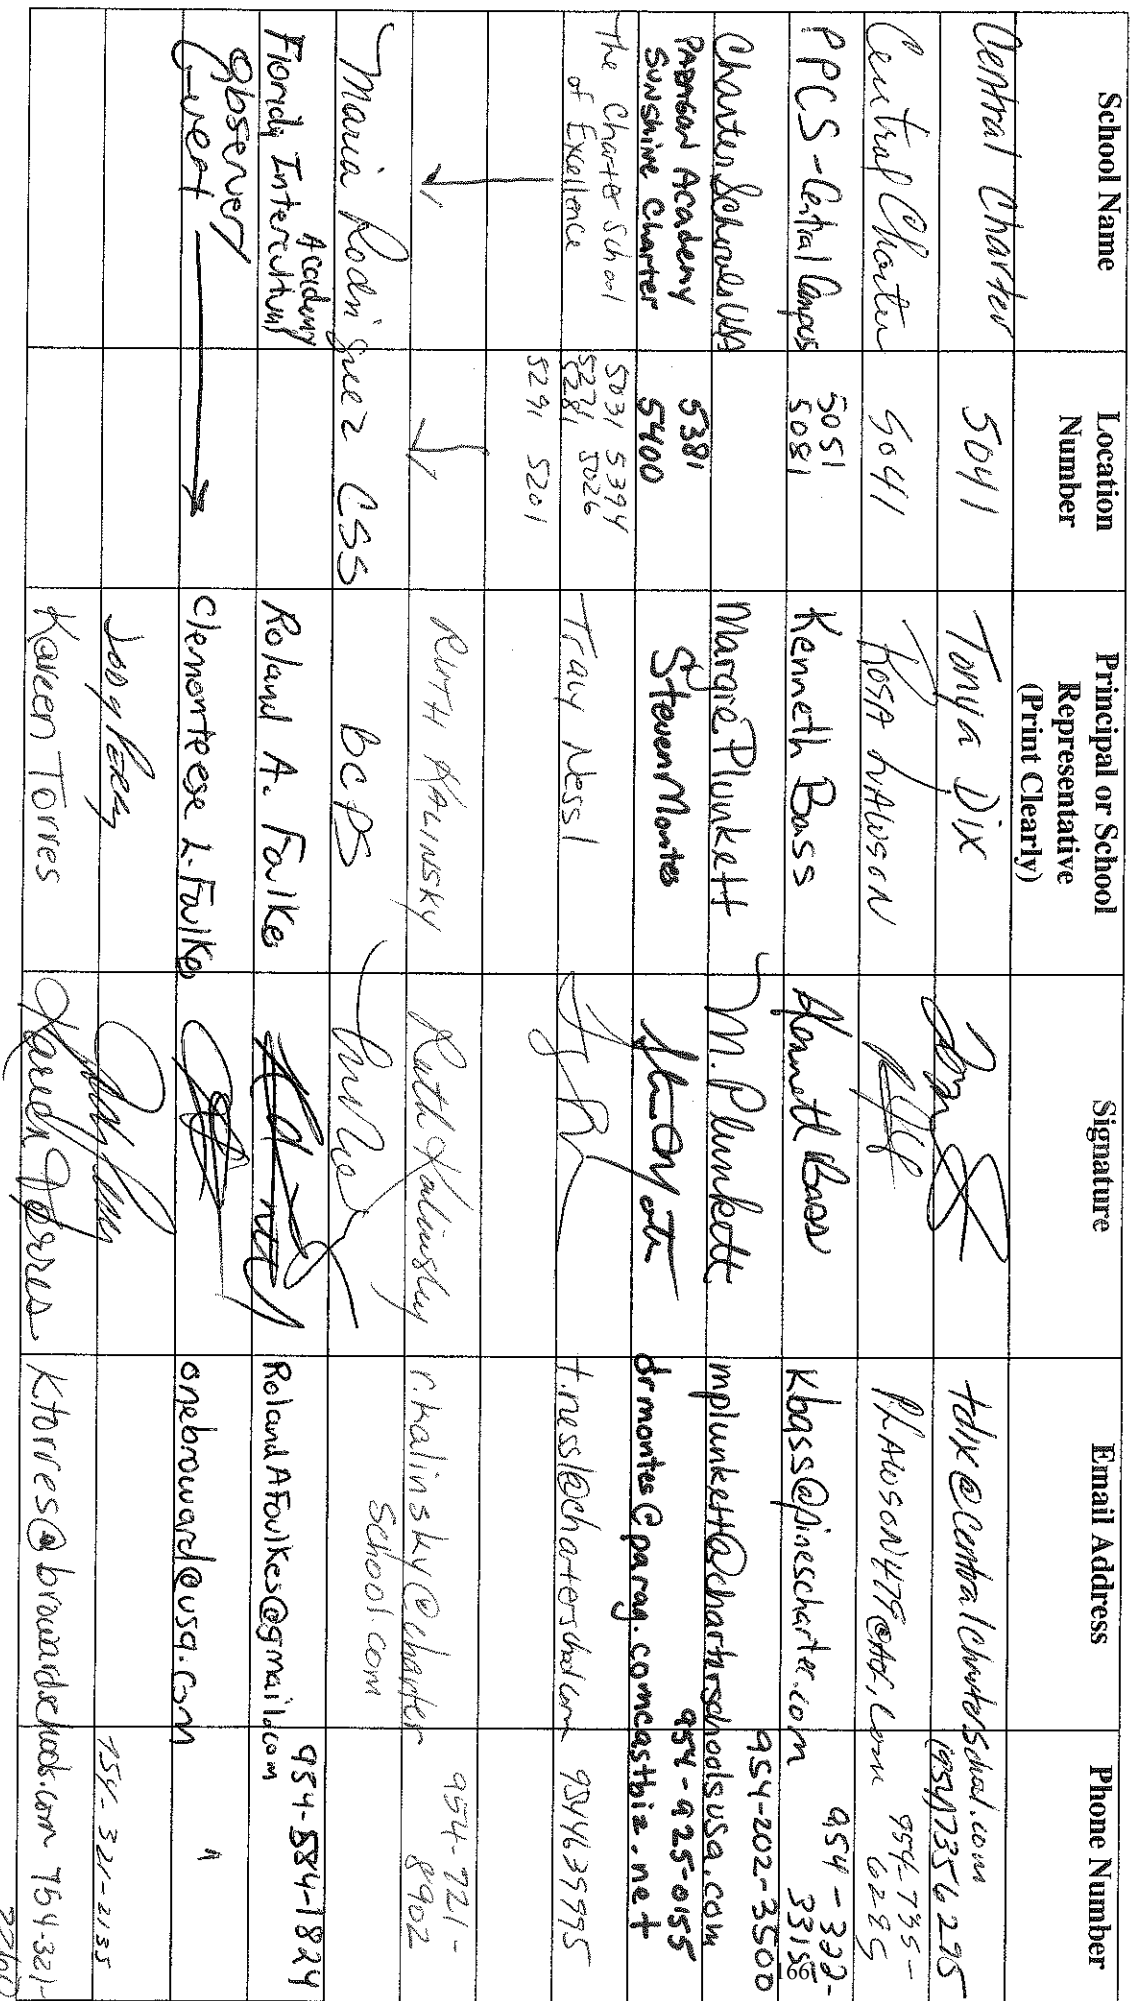 School Name
Location
Number
Principal or School
Representative
(Print Clearly)
Signature
Email Address
Phone Number
Central Charter
5041
Tonya Dix
tdix@centralcharterschool.com
(954)7356295
Central Charter
5041
Rosa
954-735-
6295
PPCS-Central Campus
5051
5081
Kenneth Bass
Kenneth Bass
Kbass@pinescharter.com
954-322-
3315
Charter Schools USA
Margie Plunkett
M. Plunkett
mplunkett@charterschoolsusa.com
954-202-3500
PARAGON Academy
SUNSHINE Charter
5381
5400
Steven Montes
drmontes@parag.comcastbiz.net
954-925-0155
The Charter School
of Excellence
5031 5394
5271 5026
5281
5291 5201
Tracy Nessl
t.nessl@charterschool.com
9544635995
RUTH KALINSKY
Ruth Kalinsky
r.kalinsky@charter
School.com
954-721-
8902
Maria Rodriguez CSS
bcps
Florida Intercultural
Academy
Roland A. Foulkes
RolandAFoulkes@gmail.com
954-584-1824
Observer/
Guest
Clemonteese L. Foulkes
onebroward@usa.com
"
Jody Perry
754-321-2135
Kareen Torres
Kareen Torres
Ktorres@browardschools.com
754-321-
166